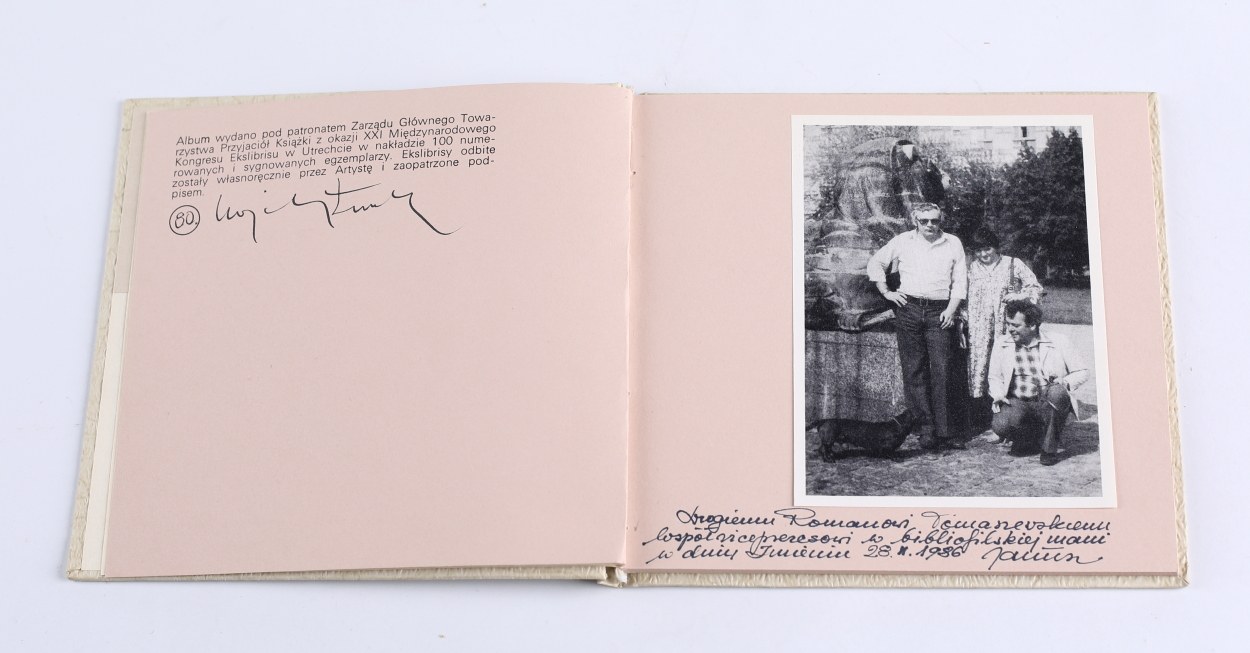 Album wydano pod patronatem Zarządu Głównego Towa-
rzystwa Przyjaciół Książki z okazji XXI Międzynarodowego
Kongresu Ekslibrisu w Utrechcie w nakładzie 100 nume-
rowanych i sygnowanych egzemplarzy. Ekslibrisy odbite
zostały własnoręcznie przez Artystę i zaopatrzone pod-
pisem.
80.
Drogiemu Romanowi Tomaszewskiemu
współwiceprezesowi w bibliofilskiej manii
w dniu Imienin 28.II.1986 Janusz